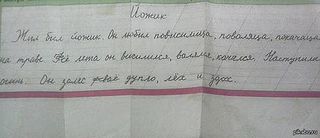 Йожик
Жил был йожик. Он любил повисилица, поволяца, покачаца
на траве. Всё лета он висилися, валялся, качался. Наступила
осинь. Он залес в дупло, лёх и здох.